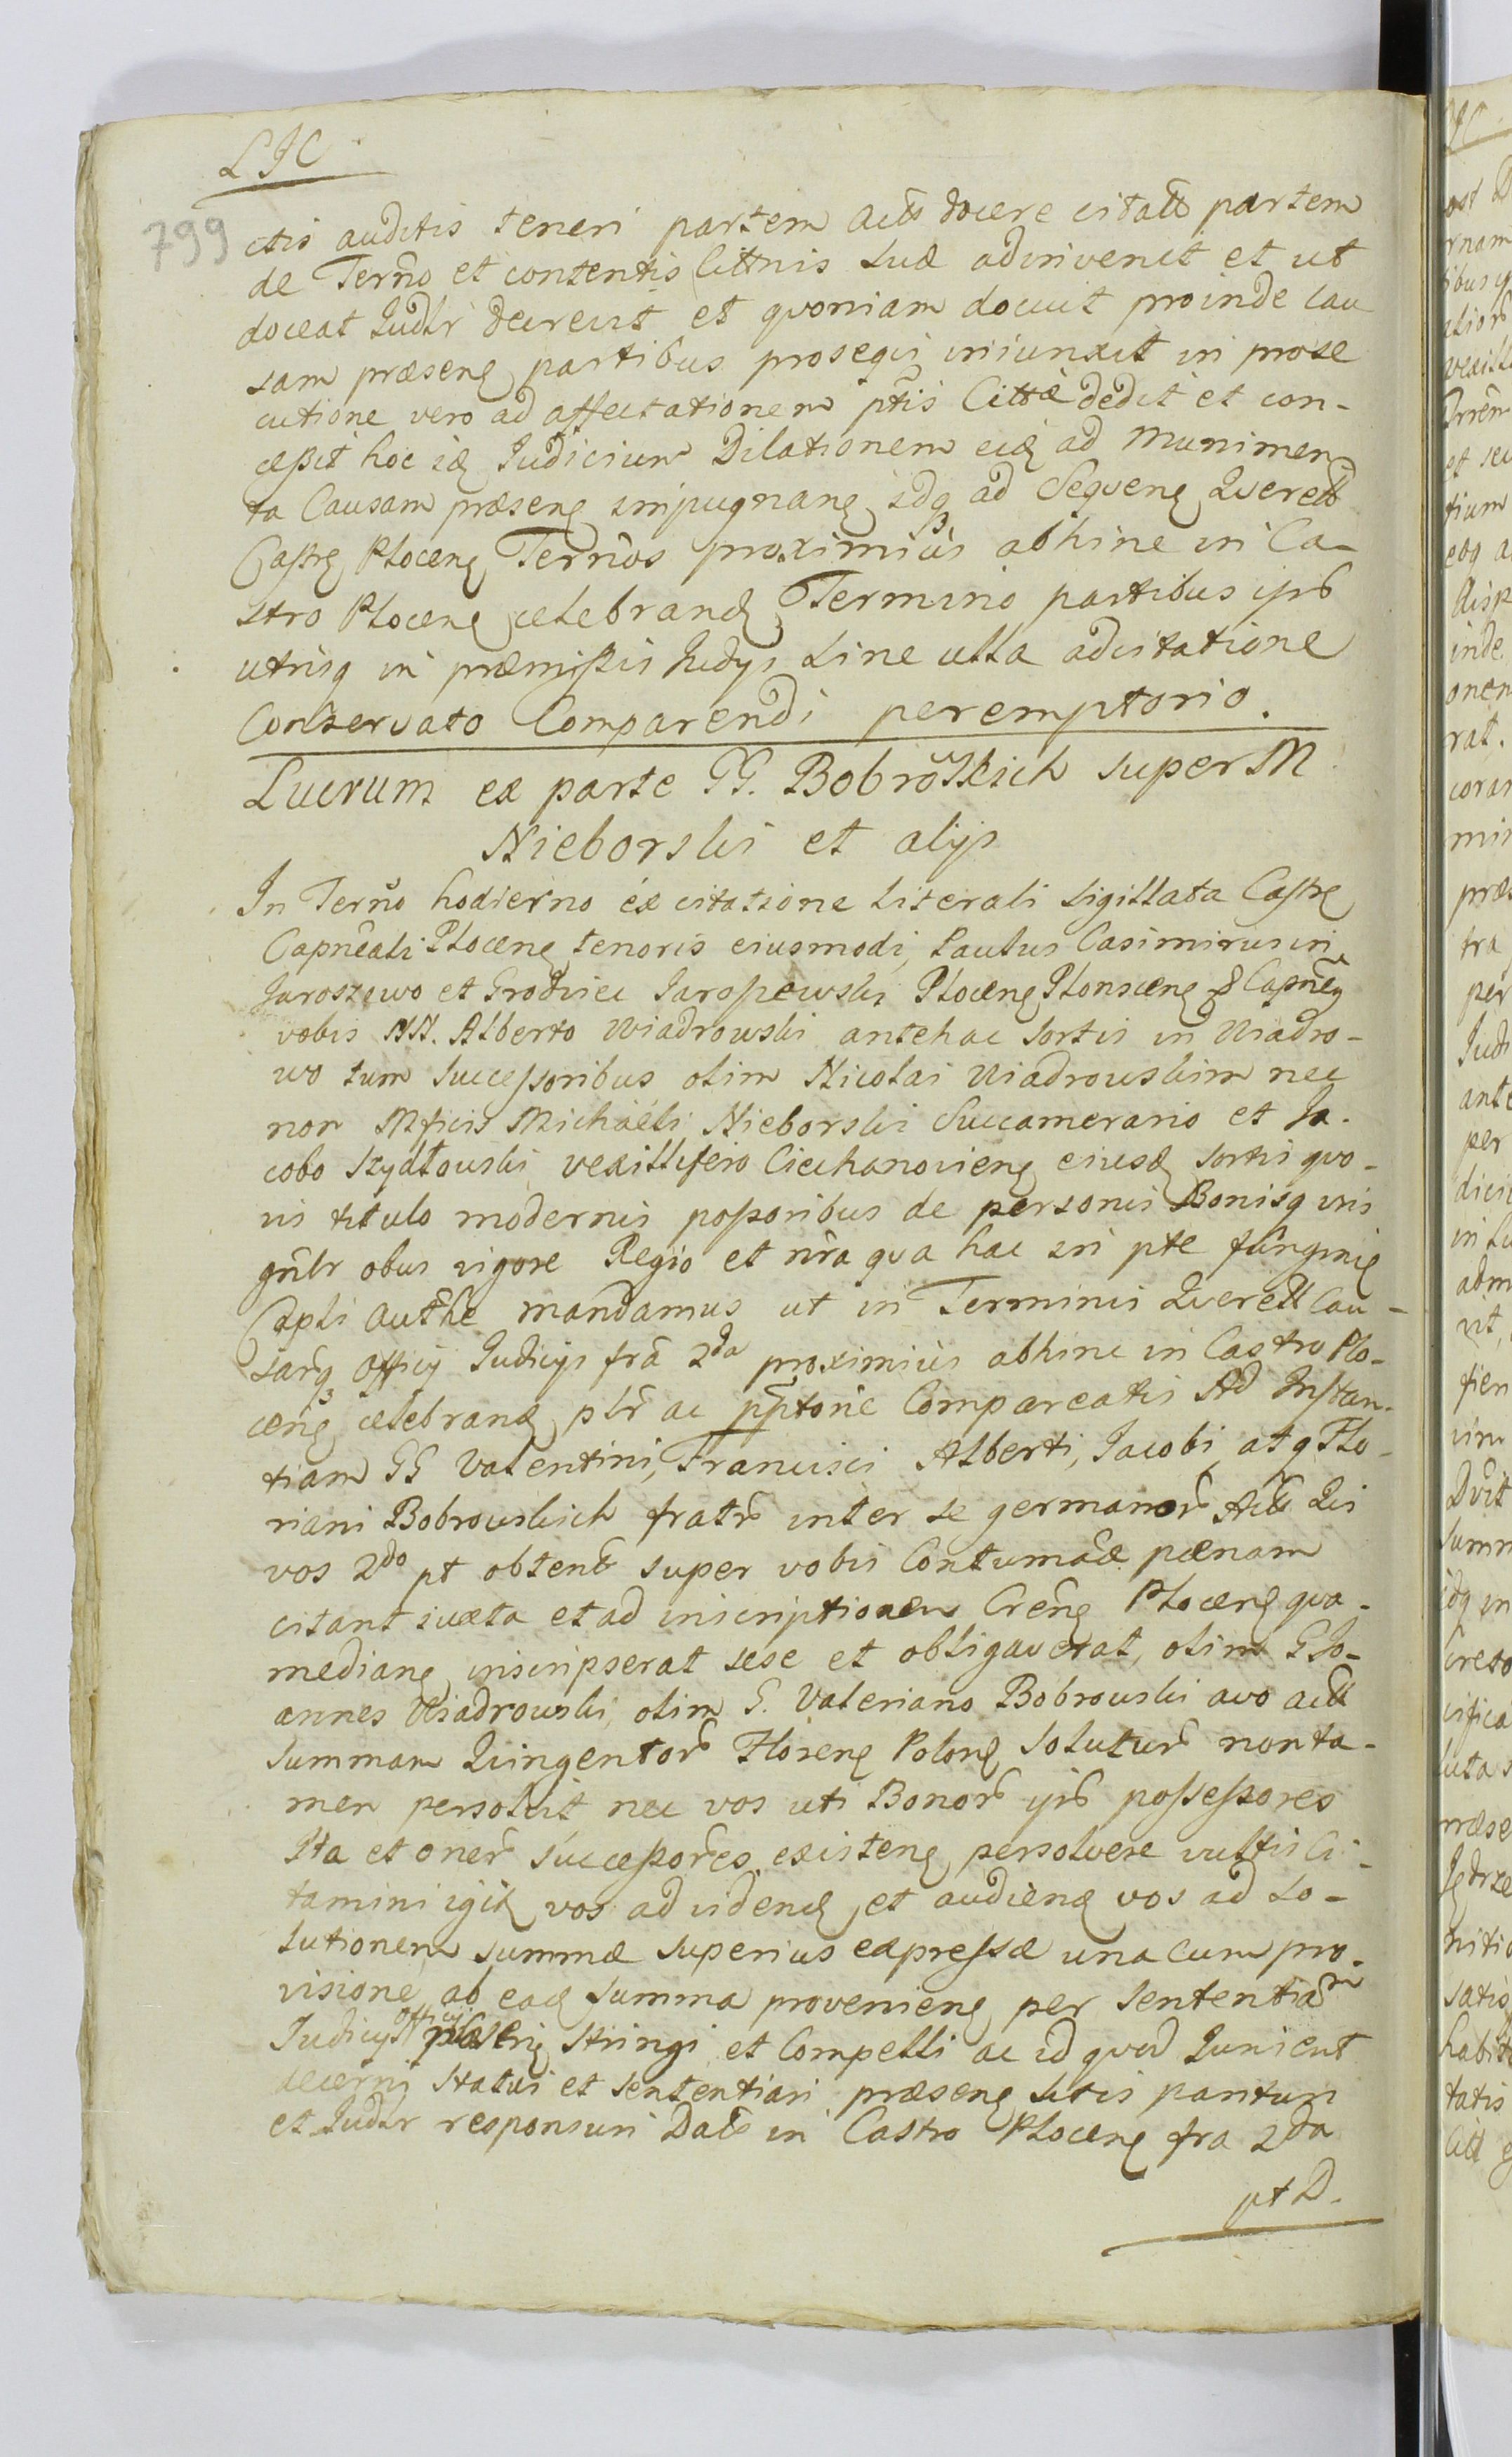 LJC
799
ctis auditis teneri partem Act̃ docere citatã partem
de Terñõ et contentis Cittnis suæ adinvenit et ut
doceat Judlr̃ decrevit et qvoniam docuit proinde cau
sam præsenę partibus proseqvi iniunxit in prose
cutione vero ad affectationem ptis Cittæ dedit et con-
ceßit hoc idę Judicium Dilationem eidę ad munimen
ta Causam præsenę impugnanę, idq ad Seqvenę Qverell
Castrę Plocenę Terñõs proximius abhinc in Ca-
stro Plocenę celebrandę Termino partibus ipsis
utrisq in præmißis Judys sine ulla adcitatione
Conservato Comparendi peremptorio.
Lucrum ex parte GG. Bobrowskich super M
Nieborski et alijs
In Terñõ hodierno ex citatione literali sigillata Castrę
Capñeali Plocenę tenoris eiusmodi, Paulus Casimirus in
Jaroszewo et Grodziec Jaroszewski Plocenę Plonscenę & Capñeę
vobis NN. Alberto Wiadrowski antehac sortis in Wiadro-
wo tum Successoribus olim Nicolai Wiadrowskim nec
non Mficis Michaeli Nieborski Succamerario et Ja-
cobo Szydłowski vexillifero Ciechanovienę eiusdę sortis qvo-
vis titulo modernis possoribus de personis Bonisq vris
gñlr̃ obus vigore Regio et nr̃a qva hac in pte fungimę
Capli Authẽ mandamus ut in Terminis Qverell Cau-
sarq Officij Judicys frã 2da proximius abhinc in Castro Plo-
cenę celebrandę plr̃ ac pptorie Compareatis Ad Instan-
tiam GG Valentini, Francisci Alberti, Jacobi, atq Flo-
riani Bobrowskich fratr̃ inter se germanor̃ Act̃ Qvi
vos 2do pt obtent̃ super vobis Contumaciæ pænam
citant iuxta et ad inscriptionem Creñę Plocenę qva-
medianę inscripserat sese et obligaverat, olim G Jo-
annes Wiadrowski, olim G. Valeriano Bobrowski avo actt̃
Summam Qvingentor̃ Florenę Polonę soluturr̃ non ta-
men persolvit, nec vos uti Bonor̃ ipsr̃ possessores
Pta et oner̃ successores existenę persolvere vultis Ci-
tamini igitę vos ad videndę et audiendę vos ad so-
lutionem summæ superius expressæ una cum pro-
visione ab eadę summa provenienę per sententiam
Judicy officij stringi et Compelli ac id qvod Juris ent
decerni statui et sententiari præsenę sitis parituri
et Judlr̃ responsuri Dat̃ in Castro Plocenę fra 2da
pt D.